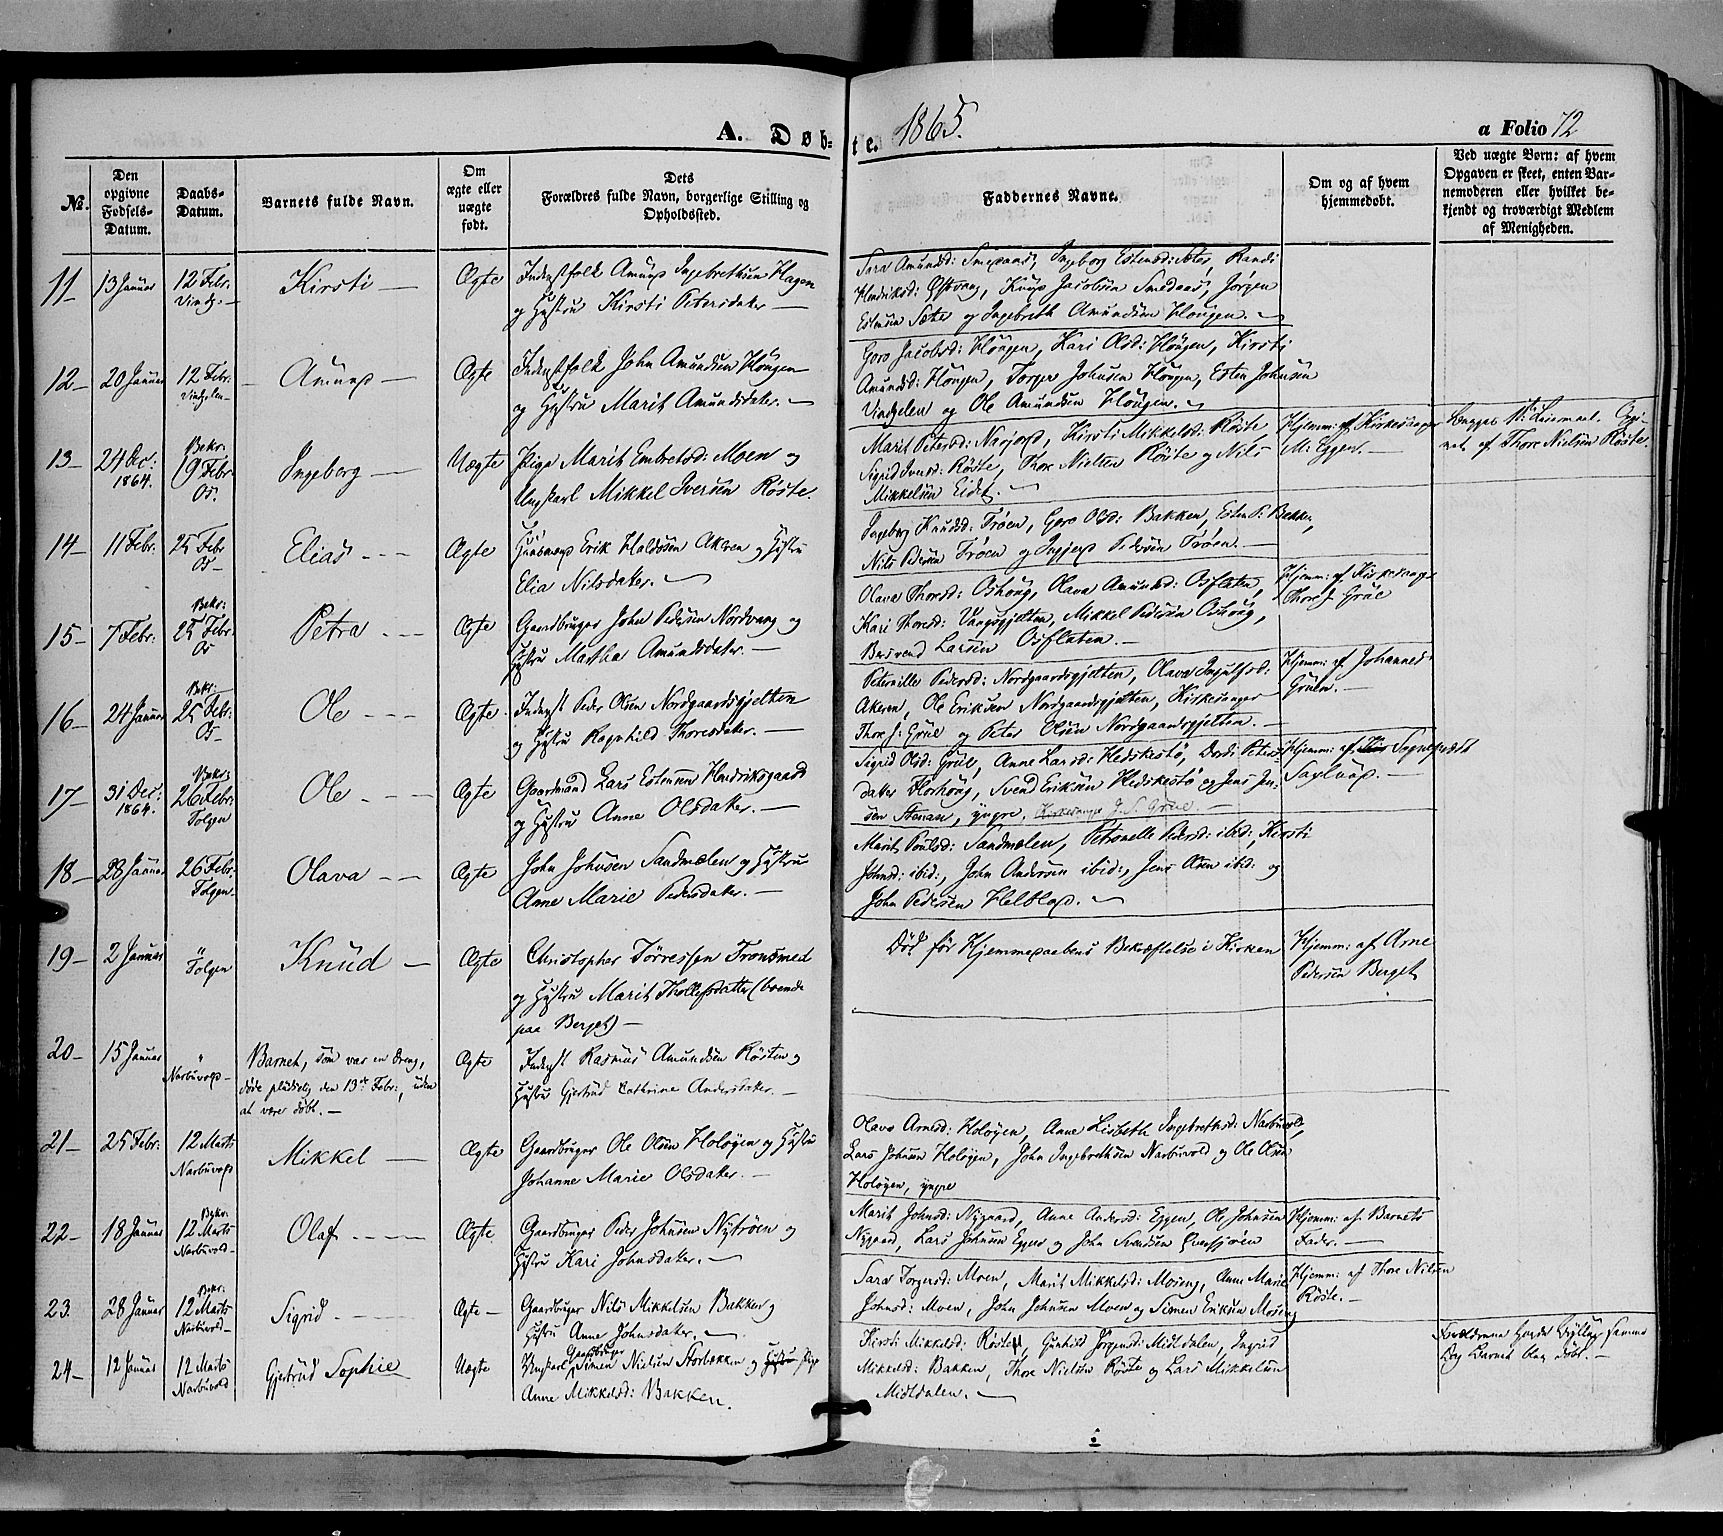 A. Døb-
te. 1865.
a Folio 72
No.
Den opgivne Fødsels-Datum.
Daabs-Datum.
Barnets fulde Navn.
Om ægte eller uægte født.
Dets Forældres fulde Navn, borgerlige Stilling og Opholdssted.
Faddernes Navne.
Om og af hvem hjemmedøbt.
Ved uægte Børn: af hvem Opgaven er skeet, enten Barnemoderen eller hvilket bekjendt og troværdigt Medlem af Menigheden.
11 13 Januar 12 Febr. Vingelen Kirsti Ægte Inderstfolk Amund Ingebrethsen Hagen
og Hustru Kirsti Petersdater
Sara Amundsd: Smedaas, Ingeborg Estensd: ibid, Randi
Henriksd: Østvang, Knud Jacobsen Smedaas, Jørgen
Estensen Sæter og Ingebreth Amundsen Hougen.
12 20 Januar 12 Febr. Vingelen Amund Ægte Inderstfolk John Amundsen Hougen
og Hustru Marit Amundsdater.
Goro Jacobsd: Hougen, Kari Olsd: Hougen, Kirsti
Amundsd: Hougen, Torger Johnsen Hougen, Esten Johnsen
Vingelen og Ole Amundsen Hougen.
13 24 Dec: 1864. Bekr: 19 Febr Os. Ingeborg Uægte Pige Marit Embretsd: Moen og
Ungkarl Mikkel Iversen Røste
Marit Petersd: Narjord, Kirsti Mikkelsd: Røste,
Sigrid Iversd: Røste, Thore Nielsen Røste og Nils
Mikkelsen Eidet.
Hjemm: af Kirkesanger
M. Eggen.
Begges 1ste Leiermaal. Opgi-
vet af Thore Nielsen Røste.
14 11 Febr. 25 Febr Os Elias Ægte Huusmand Erik Haldosen Akren og Hustru
Elia Nilsdater.
Ingeborg Knudsd: Trøen, Goro Olsd: Bakken, Esten P: Bakken,
Nils Pedersen Trøen og Ingjerd Pedersen Trøen.
15 7 Febr: Bekr: 25 Febr: Os Petra Ægte Gaardbruger John Pedersen Nordvang og
Hustru Martha Amundsdater.
Olava Thoresd: Oshoug, Olava Amundsd: Osfloten,
Kari Thoresd: Vangsgjelten, Mikkel Pedersen Oshoug,
Bersvend Larsen Osfloten.
Hjemm: af Kirkesanger
Thore J. Grüe
16 24 Januar Bekr: 25 Febr: Os Ole Ægte Inderst Peder Olsen Nordgaardsgjelten
og Hustru Ragnhild Thoresdater.
Peternille Pedersd: Nordgaardsgjelten, Olava Ingulfsd:
Akren, Ole Eriksen Nordgaardsgjelten, Kirkesanger
Thor J. Grüe og Peter Olsen Nordgaardsgjelten.
Hjemm: af Johannes
Grüe.
17 31 Dec: 1864. Bekr: 26 Febr: Tolgen Ole Ægte Gaardmand Lars Estensen Henriksgaard
og Hustru Anne Olsdater.
Sigrid Olsd: Grüe, Anne Larsd: Hedskestø, Dordi Peters-
dater Horhoug, Svend Eriksen Hedskestø og Jens Jen-
sen Stenaas, yngre. Kirkesanger J. S. Grüe.
Hjemm: af Sogneprest
18 28 Januar 26 Febr: Tolgen Olava Ægte John Johnsen Sandmælen og Hustru
Anne Marie Pedersdater.
Marit Poulsd: Sandmælen, Petronelle Pedersd: ibid, Kirsti
Johnsd: ibid:, John Andersen ibid:, Jens Olsen ibid: og
John Pedersen Helblad.
19 2 Januar " Tolgen Knud Ægte Christopher Tørressen Tronsmed
og Hustru Marit Thollefsdatter (boende
paa Berget)
Død før Hjemmedaabens Bekræftelse i Kirken
Hjemm: af Arne
Pedersen Berget
20 15 Januar " Narbuvold Barnet, som var en Dreng,
døde pludselig den 13de Febr:, uden
at være døbt. Ægte Inderst Rasmus Amundsen Røsten og
Hustru Gjertrud Cathrine Andersdater.
21 25 Febr: 12 Marts Narbuvold Mikkel Ægte Gaardbruger Ole Olsen Holøyen og Hustru
Johanne Marie Olsdater.
Olava Arnesd: Holøyen, Anne Lisbeth Ingebrethsd: Narbuvold,
Lars Johnsen Holøyen, John Ingebrethsen Narbuvold og Ole Olsen
Holøyen, yngre
22 18 Januar Bekr: 12 Marts Narbuvold Olaf Ægte Gaardbruger Peder Johnsen Nytrøen og
Hustru Kari Johnsdater.
Marit Johnsd: Nygaard, Anne Andersd: Eggen, Ole Johnsen
Nygaard, Lars Johnsen Eggen og John Svendsen
Hjemm: af Barnets
Fader.
23 28 Januar Bekr: 12 Marts Narbuvold Sigrid Ægte Gaardbruger Nils Mikkelsen Bakken og
Hustru Anne Johnsdater.
Sara Torgersd: Moen, Marit Mikkelsd: Moseng, Anne Marie
Johnsd: Moen, John Johnsen Moen og Simen Eriksen Moseng
Hjemm: af Thore Nilsen
Røste.
24 12 Januar 12 Marts Narbuvold Gjertrud Sophie Uægte Ungkarl Gaardbruger Simen Nielsen Storbækken og Hustru Pige
Anne Mikkelsd: Bakken.
Kirsti Mikkelsd: Røste, Gunhild Jørgensd: Midtdalen, Ingrid
Mikkelsd: Bakken, Thore Nielsen Røste og Lars Mikkelsen
Midtdalen.
Forældrene havde Bryllup samme
Dag Barnet blev døbt.